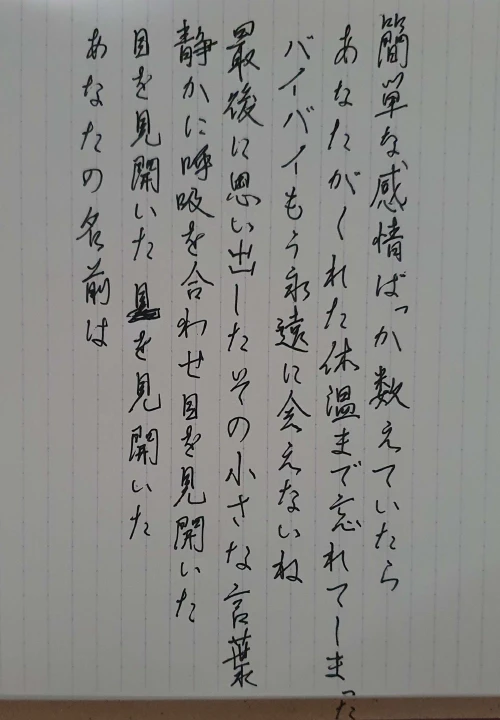 簡単な感情ばっか数えていたら
あなたがくれた体温まで忘れてしまった
バイバイもう永遠に会えないね
最後に思い出したその小さな言葉
静かに呼吸を合わせ目を見開いた
目を見開いた目を見開いた
あなたの名前は